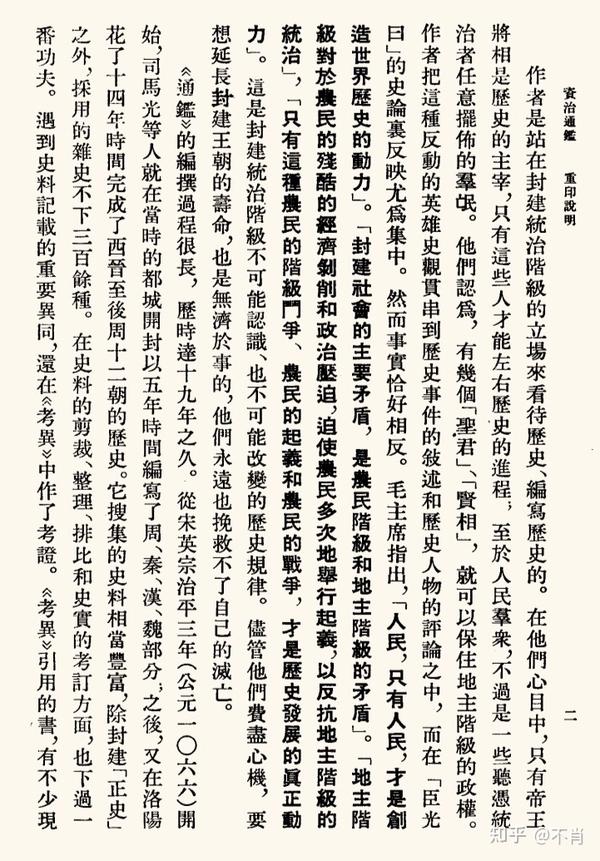 資治通鑑　重印說明
二
作者是站在封建統治階級的立場來看待歷史、編寫歷史的。在他們心目中，只有帝王
將相是歷史的主宰，只有這些人才能左右歷史的進程；至於人民羣衆，不過是一些聽憑統
治者任意擺佈的羣氓。他們認爲，有幾個「聖君」、「賢相」，就可以保住地主階級的政權。
作者把這種反動的英雄史觀貫串到歷史事件的敘述和歷史人物的評論之中，而在「臣光
曰」的史論裏反映尤爲集中。然而事實恰好相反。毛主席指出，「人民，只有人民，才是創
造世界歷史的動力」。「封建社會的主要矛盾，是農民階級和地主階級的矛盾」。「地主階
級對於農民的殘酷的經濟剝削和政治壓迫，迫使農民多次地舉行起義，以反抗地主階級的
統治」，「只有這種農民的階級鬥爭、農民的起義和農民的戰爭，才是歷史發展的眞正動
力」。這是封建統治階級不可能認識、也不可能改變的歷史規律。儘管他們費盡心機，要
想延長封建王朝的壽命，也是無濟於事的，他們永遠也挽救不了自己的滅亡。
《通鑑》的編撰過程很長，歷時達十九年之久。從宋英宗治平三年（公元一〇六六）開
始，司馬光等人就在當時的都城開封以五年時間編寫了周、秦、漢、魏部分；之後，又在洛陽
花了十四年時間完成了西晉至後周十二朝的歷史。它搜集的史料相當豐富，除封建「正史」
之外，採用的雜史不下三百餘種。在史料的剪裁、整理、排比和史實的考訂方面，也下過一
番功夫。遇到史料記載的重要異同，還在《考異》中作了考證。《考異》引用的書，有不少現
知乎 @不肖